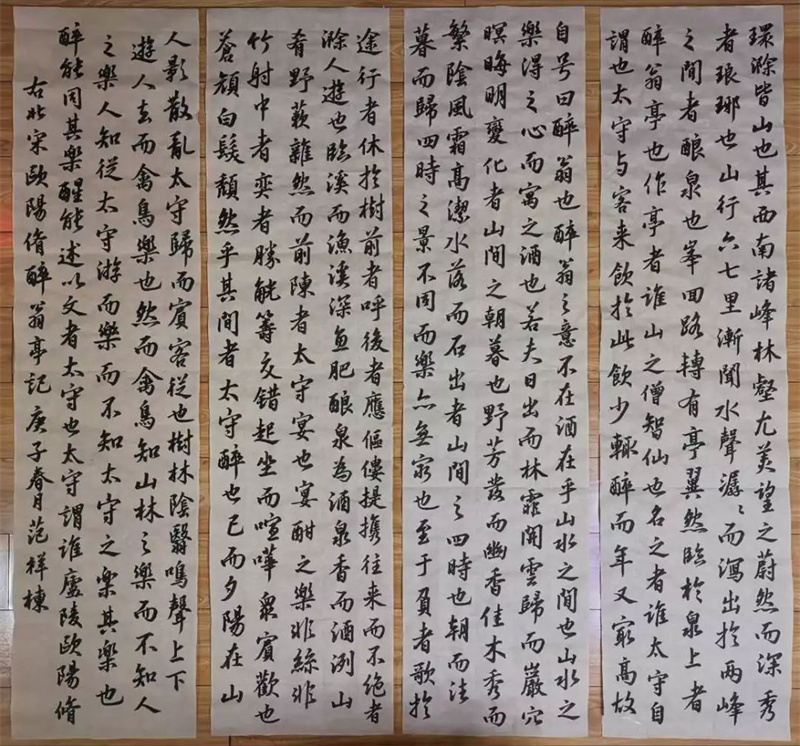 環滁皆山也其西南諸峰林壑尤美望之蔚然而深秀
者琅琊也山行六七里漸聞水聲潺〻而瀉出於兩峰
之間者釀泉也峯回路轉有亭翼然臨於泉上者
醉翁亭也作亭者誰山之僧智仙也名之者誰太守自
謂也太守与客来飲於此飲少輒醉而年又冣高故
自号曰醉翁也醉翁之意不在酒在乎山水之間也山水之
樂得之心而寓之酒也若夫日出而林霏開雲歸而巖穴
暝晦明變化者山間之朝暮也野芳發而幽香佳木秀而
繁陰風霜高潔水落而石出者山間之四時也朝而往
暮而歸四時之景不同而樂亦無窮也至于負者歌於
途行者休於樹前者呼後者應傴僂提攜往来而不绝者
滁人遊也臨溪而漁溪深魚肥釀泉為酒泉香而酒洌山
肴野蔌雜然而前陳者太守宴也宴酣之樂非絲非
竹射中者奕者勝觥籌交錯起坐而喧嘩衆賓歡也
蒼顏白髮頹然乎其間者太守醉也已而夕陽在山
人影散亂太守歸而賓客從也樹林陰翳鳴聲上下
遊人去而禽鳥樂也然而禽鳥知山林之樂而不知人
之樂人知從太守游而樂而不知太守之樂其樂也
醉能同其樂醒能述以文者太守也太守謂誰廬陵歐陽脩
右北宋歐陽脩醉翁亭記庚子春月范祥棟